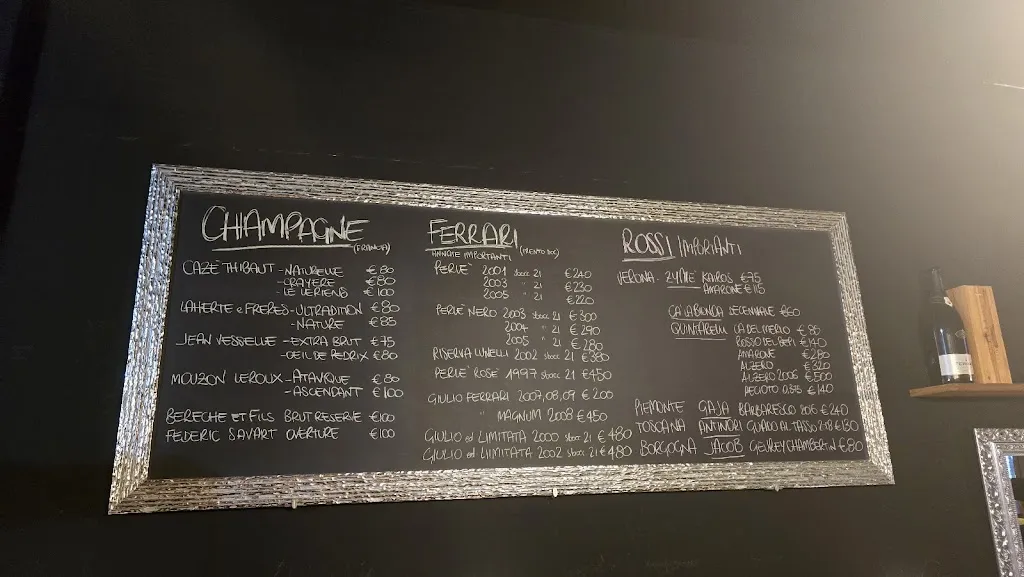 CHAMPAGNE
(FRANCIA)
CAZÉ THIBAUT - NATURELLE €80
- CRAYERE €80
- LE VERIENS €100
LAHERTE e FRERES - ULTRADITION €80
- NATURE €85
JEAN VESSELLE - EXTRA BRUT €75
- OEIL DE PEDRIX €80
MOUZON LEROUX - ATAVIQUE €80
- ASCENDANT €100
BERECHE ET FILS BRUT RESERVE €100
FEDERIC SAVART OVERTURE €100
FERRARI
ANNATE IMPORTANTI (TRENTO DOC)
PERLE' 2001 sbocc 21 €240
2003 " 21 €230
2005 " 21 €220
PERLE' NERO 2003 sbocc 21 €300
2004 " 21 €290
2005 " 21 €280
RISERVA LUNELLI 2002 sbocc 21 €380
PERLE' ROSE 1997 sbocc 21 €450
GIULIO FERRARI 2007,08,09 €200
" MAGNUM 2008 €450
GIULIO ed LIMITATA 2000 sbocc 21 €480
GIULIO ed LIMITATA 2002 sbocc 21 €480
ROSSI IMPORTANTI
VERONA - ZYMÉ KAIROS €75
AMARONE €115
CA LA BIONDA DECENNALE €60
QUINTARELLI CA DEL MERLO €85
ROSSO DEL BEPI €140
AMARONE €280
ALZERO €320
ALZERO 2006 €500
RECIOTO 0.375 €140
PIEMONTE GAJA BARBARESCO 2016 €240
TOSCANA ANTINORI GUADO AL TASSO 218 €130
BORGOGNA JACOB GEVREY CHAMBERTIN €80